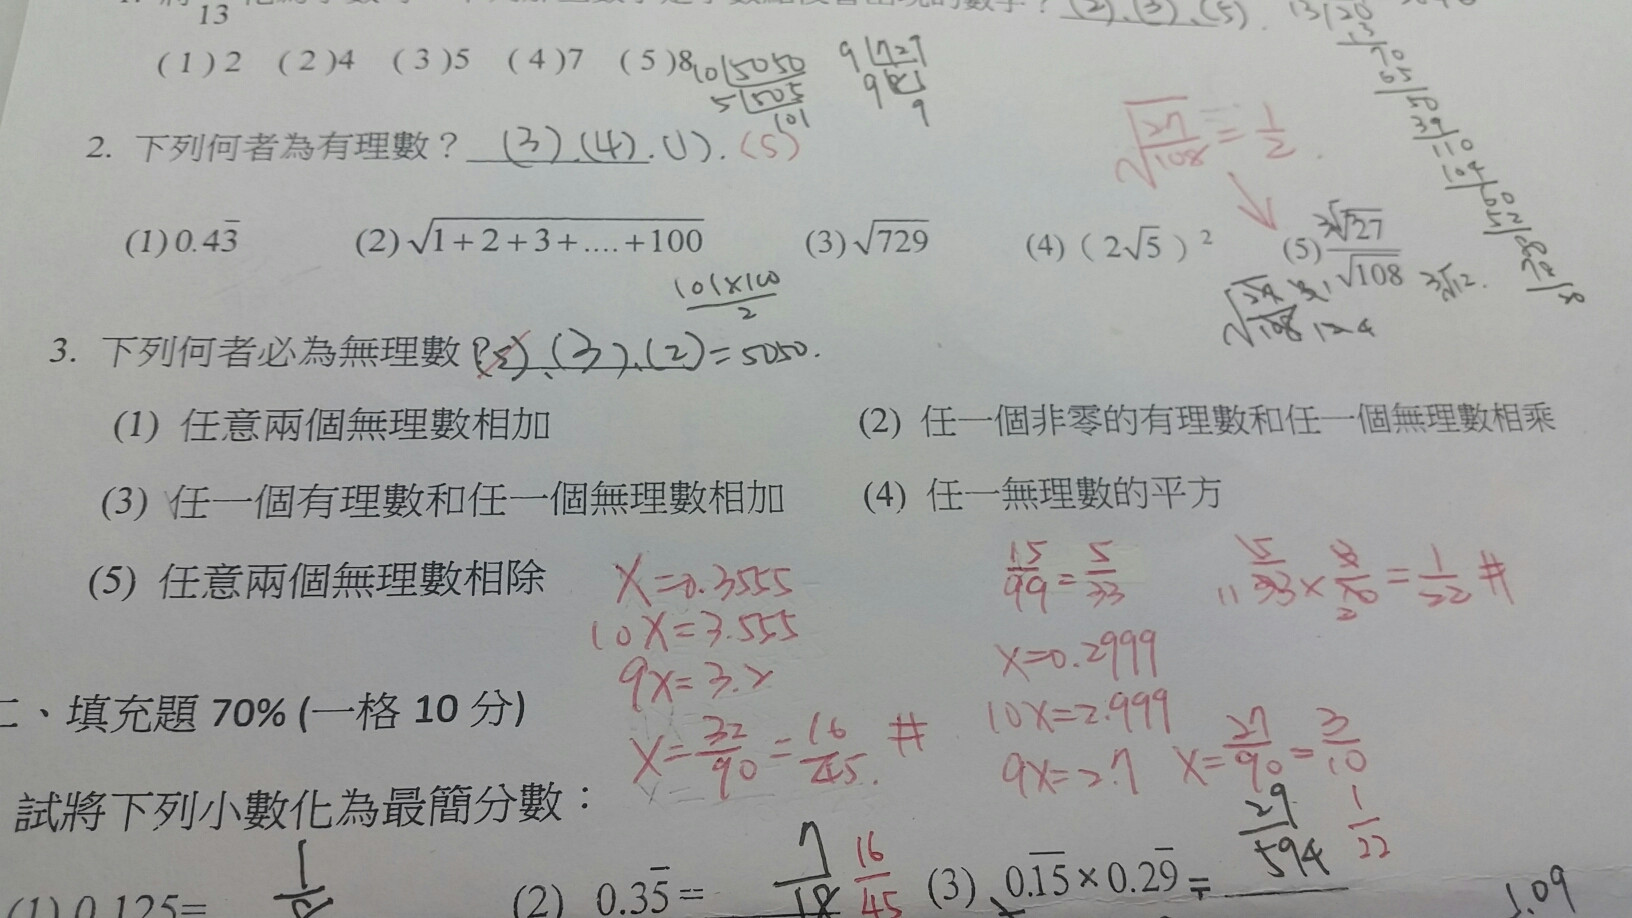 13
(1)2 (2)4 (3)5 (4)7 (5)8
10 5050
5 505
101
9 727
9 81
9
2. 下列何者為有理數？ (3).(4).(1).(5)
√27/√108 = 1/2
(1) 0.43̅ (2) √1+2+3+....+100 (3) √729 (4) (2√5)² (5) 3√27/√108
101×100/2
3. 下列何者必為無理數？(5)、(3)、(2) =5050.
(1) 任意兩個無理數相加 (2) 任一個非零的有理數和任一個無理數相乘
(3) 任一個有理數和任一個無理數相加 (4) 任一無理數的平方
(5) 任意兩個無理數相除
X=0.3555
10X=3.555
9X=3.2
X=32/90=16/45. #
15/99=5/33
5/33×3/10=1/22 #
X=0.2999
10X=2.999
9X=2.7 X=27/90=3/10
二、填充題 70% (一格 10 分)
試將下列小數化為最簡分數：
(1) 0.125= (2) 0.35̅= 7/18 16/45 (3) 0.1̅5̅×0.29̅= 29/594 1/22
1.09